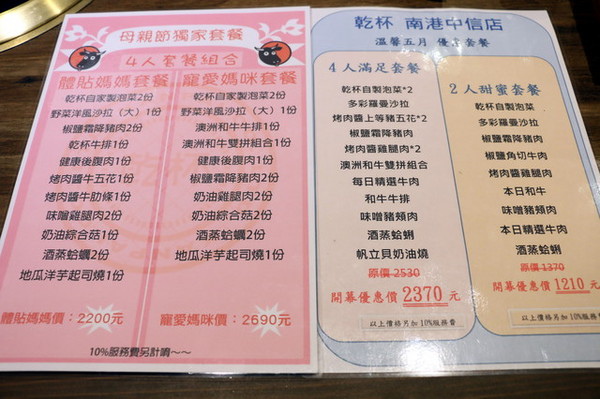 母親節獨家套餐
4人套餐組合
體貼媽媽套餐
乾杯自家製泡菜2份
野菜洋風沙拉（大）1份
椒鹽霜降豬肉2份
乾杯牛排1份
健康後腹肉1份
烤肉醬牛五花1份
烤肉醬牛肋條1份
味噌雞腿肉2份
奶油綜合菇2份
酒蒸蛤蠣2份
地瓜洋芋起司燒1份
體貼媽媽價：2200元
寵愛媽咪套餐
乾杯自家製泡菜2份
野菜洋風沙拉（大）1份
澳洲和牛牛排1份
澳洲和牛雙拼組合1份
健康後腹肉1份
椒鹽霜降豬肉2份
奶油雞腿肉2份
奶油綜合菇2份
酒蒸蛤蠣2份
地瓜洋芋起司燒1份
寵愛媽咪價：2690元
10%服務費另計唷～～
乾杯 南港中信店
溫馨五月 優惠套餐
4人滿足套餐
乾杯自製泡菜*2
多彩羅曼沙拉
烤肉醬上等豬五花*2
椒鹽霜降豬肉
烤肉醬雞腿肉*2
澳洲和牛雙拼組合
每日精選牛肉
和牛牛排
味噌豬頰肉
酒蒸蛤蜊
帆立貝奶油燒
原價 2530
開幕優惠價 2370 元
以上價格另加10%服務費
2人甜蜜套餐
乾杯自製泡菜
多彩羅曼沙拉
椒鹽霜降豬肉
椒鹽角切牛肉
烤肉醬雞腿肉
本日和牛
味噌豬頰肉
本日精選牛肉
酒蒸蛤蜊
原價 1370
開幕優惠價 1210 元
以上價格另加10%服務費